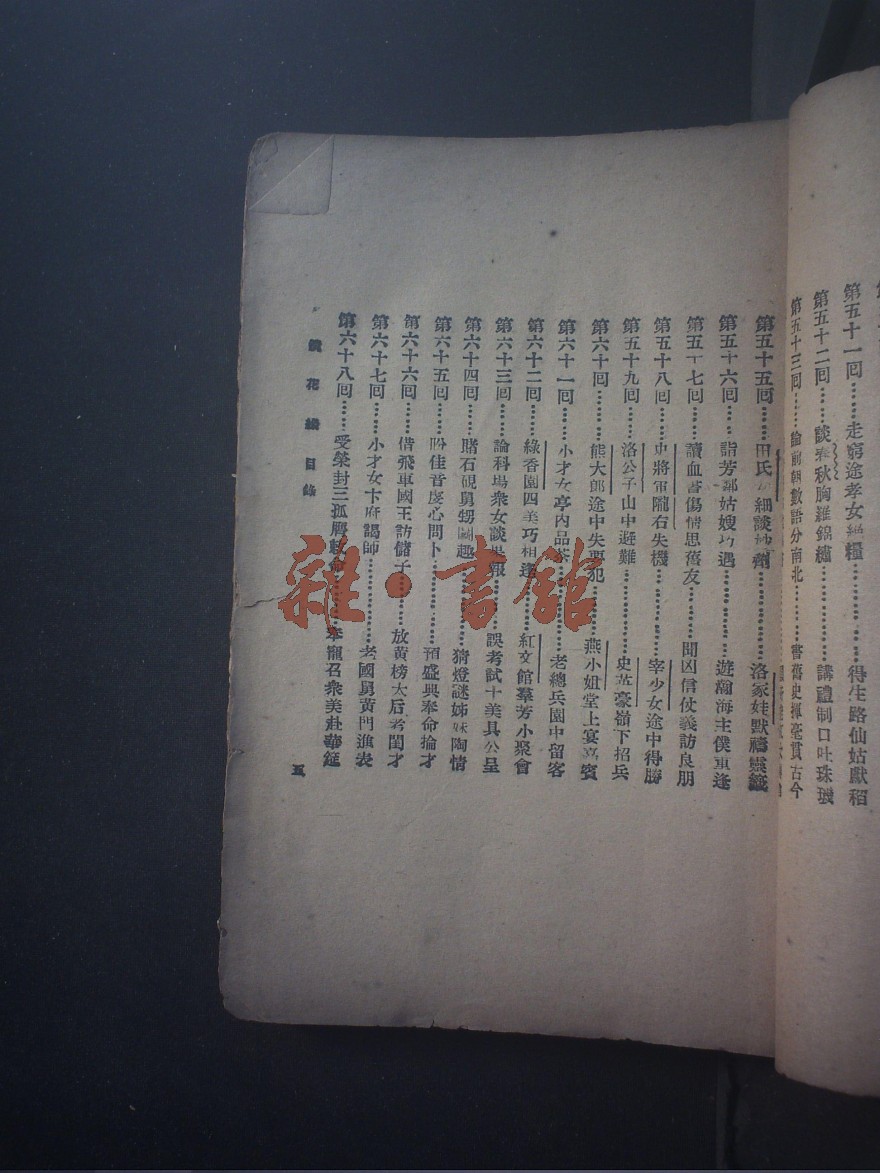 第五十一回……走窮途孝女絕糧…………得生路仙姑獻稻
第五十二回……談春秋胸羅錦繡…………講禮制口吐珠璣
第五十三回……論前朝數語分南北…………書舊史揮毫貫古今
第五十五回……田氏 細談 劑…………洛家娃默禱靈籤
第五十六回……詣芳鄰姑嫂巧遇…………遊瀚海主僕重逢
第五十七回……讀血書傷情思舊友…………聞凶信仗義訪良朋
第五十八回……史將軍隴右失機…………宰少女途中得勝
第五十九回……洛公子山中避難…………史英豪嶺下招兵
第六十回……熊大郎途中失要犯…………燕小姐堂上宴嘉賓
第六十一回……小才女亭內品茶…………老總兵園中留客
第六十二回……綠香園四美巧相逢…………紅文館羣芳小聚會
第六十三回……論科場衆女談果報…………誤考試十美具公呈
第六十四回……賭石硯舅甥鬬趣…………猜燈謎姊妹陶情
第六十五回……盼佳音虔心問卜…………預盛典奉命掄才
第六十六回……借飛車國王訪儲子…………放黃榜太后考閨才
第六十七回……小才女卞府謁師…………老國舅黃門進表
第六十八回……受榮封三孤膺敕命…………奉寵召衆美赴華筵
鏡花緣 目錄
五
雜·書館